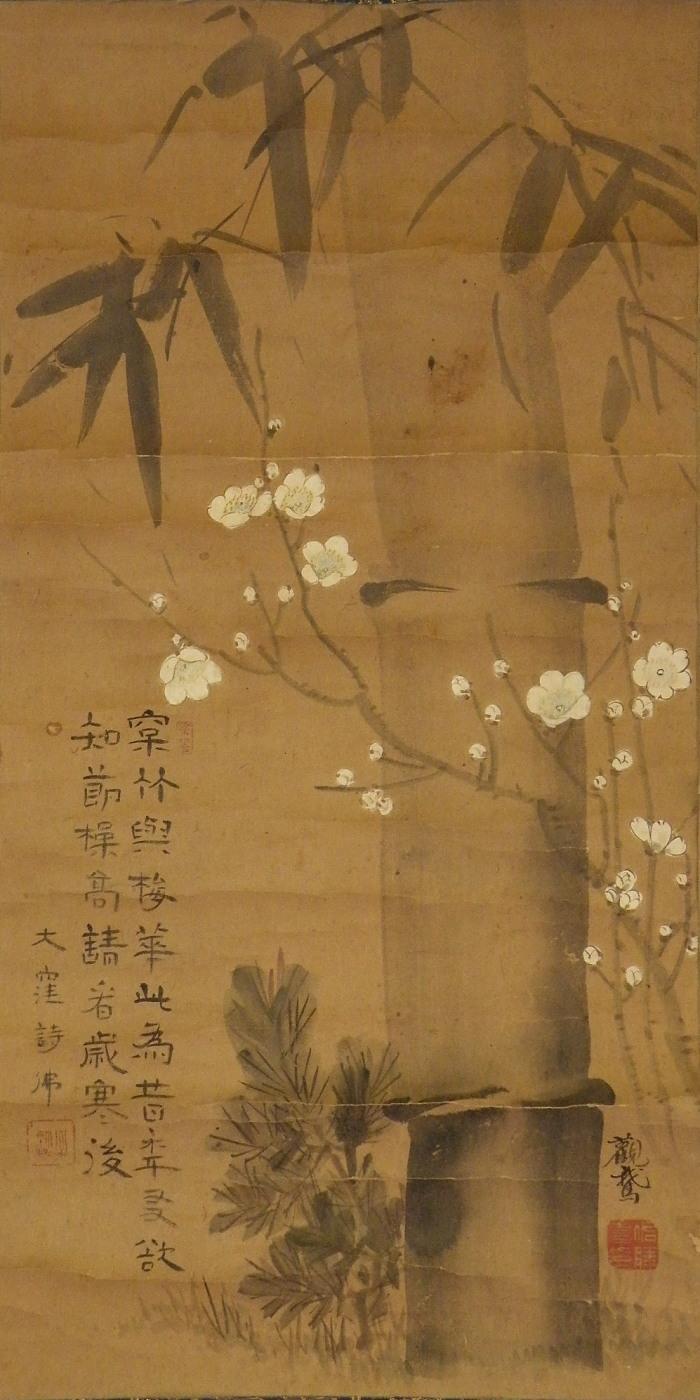 㮤竹與梅華此為昔年友欲
知節操高請看歳寒後
大窪詩佛
觀鵞